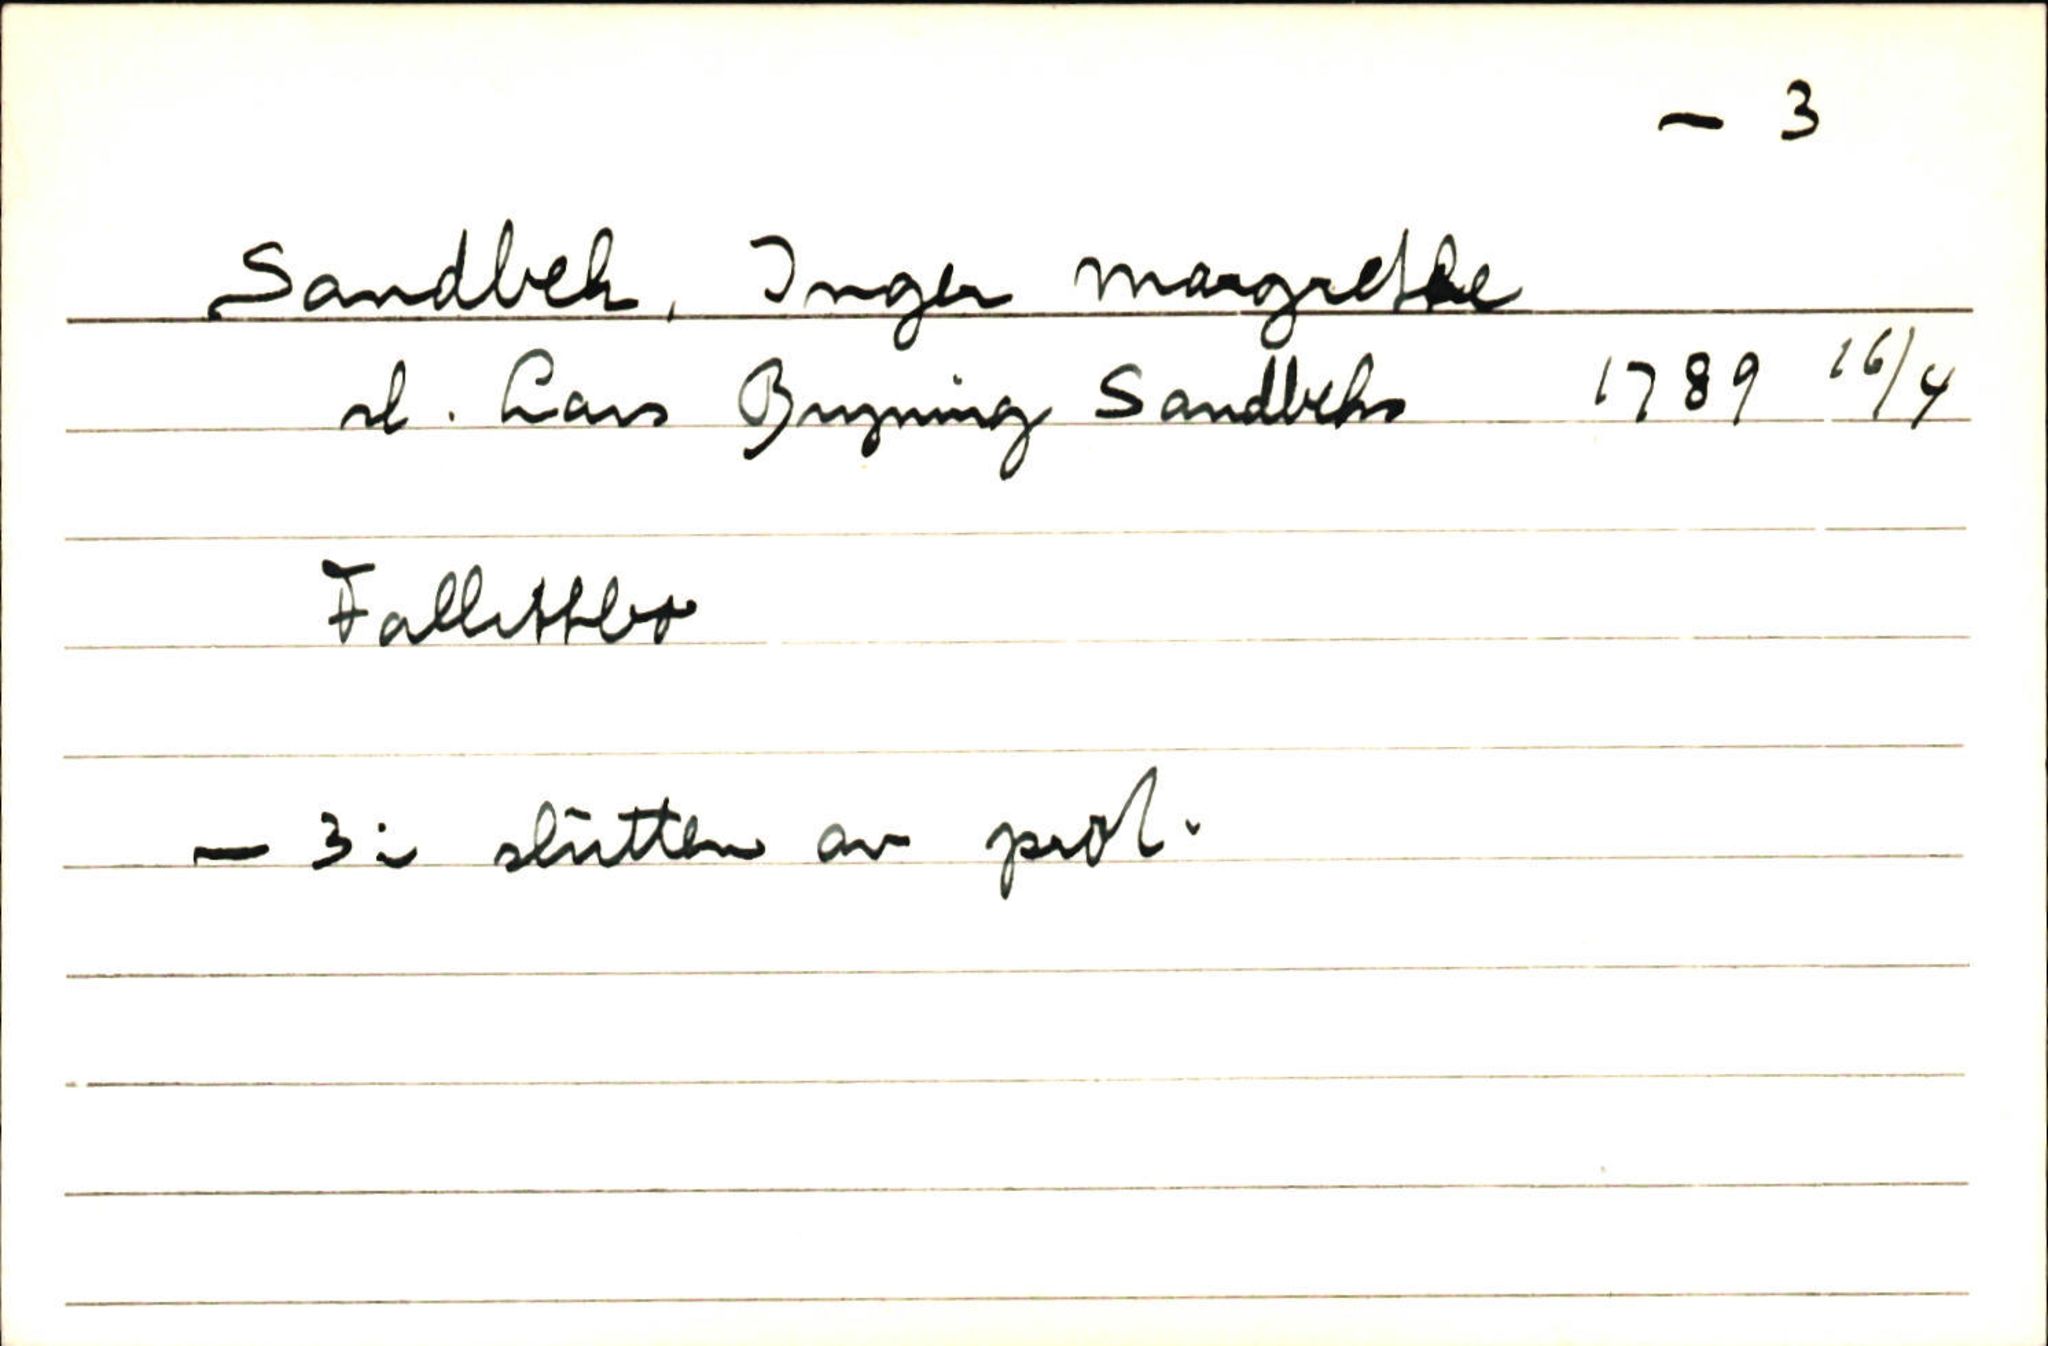 – 3
Sandbek, Inger Margrethe
sl. Lars Bryning Sandbeks 1789 16/4
Fallittbo
– 3 i slutten av prot.